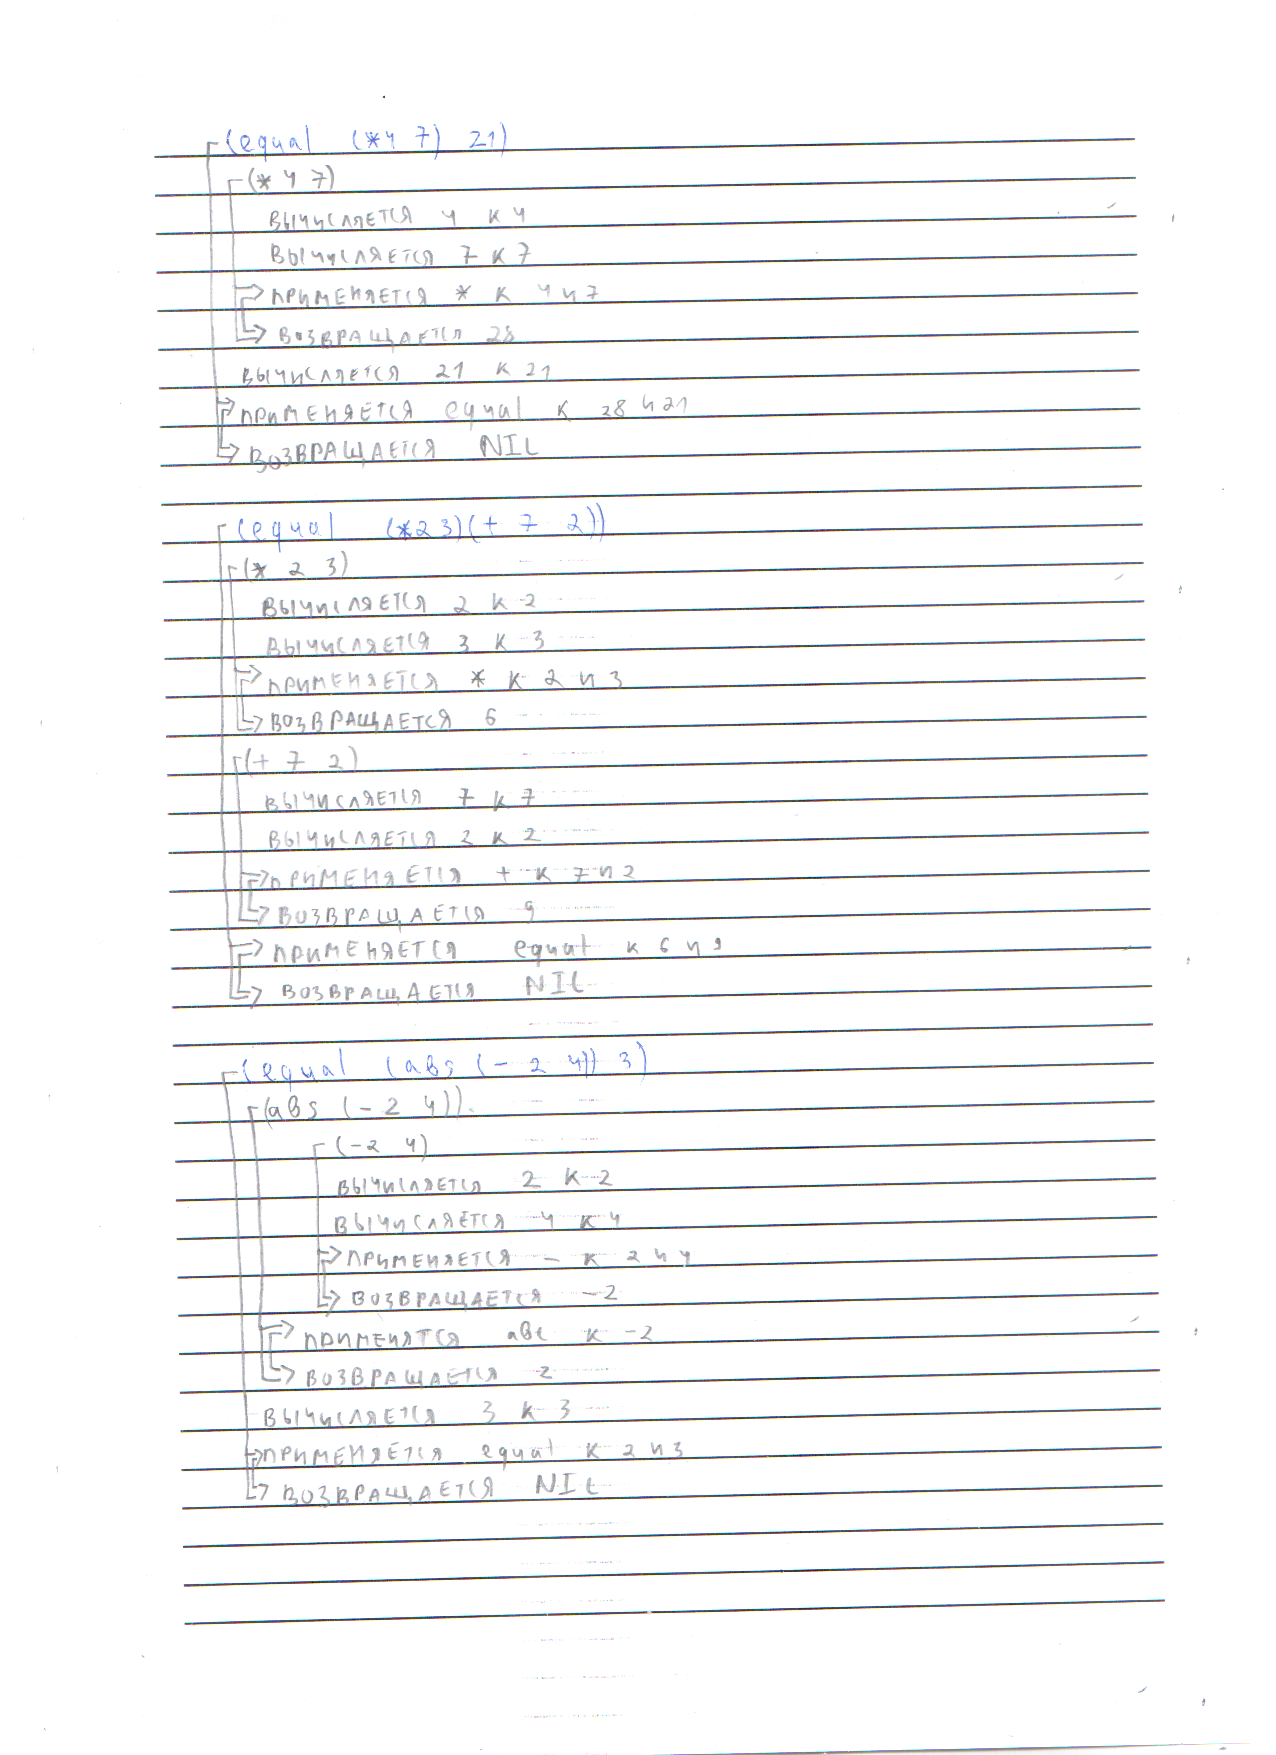 (equal (*4 7) 21)
(* 4 7)
ВЫЧИСЛЯЕТСЯ 4 К 4
ВЫЧИСЛЯЕТСЯ 7 К 7
ПРИМЕНЯЕТСЯ * К 4 И 7
ВОЗВРАЩАЕТСЯ 28
ВЫЧИСЛЯЕТСЯ 21 К 21
ПРИМЕНЯЕТСЯ equal К 28 И 21
ВОЗВРАЩАЕТСЯ NIL
(equal (*2 3)(+ 7 2))
(* 2 3)
ВЫЧИСЛЯЕТСЯ 2 К 2
ВЫЧИСЛЯЕТСЯ 3 К 3
ПРИМЕНЯЕТСЯ * К 2 И 3
ВОЗВРАЩАЕТСЯ 6
(+ 7 2)
ВЫЧИСЛЯЕТСЯ 7 К 7
ВЫЧИСЛЯЕТСЯ 2 К 2
ПРИМЕНЯЕТСЯ + К 7 И 2
ВОЗВРАЩАЕТСЯ 9
ПРИМЕНЯЕТСЯ equal К 6 И 9
ВОЗВРАЩАЕТСЯ NIL
(equal (abs (- 2 4)) 3)
(abs (- 2 4))
(-2 4)
ВЫЧИСЛЯЕТСЯ 2 К 2
ВЫЧИСЛЯЕТСЯ 4 К 4
ПРИМЕНЯЕТСЯ - К 2 И 4
ВОЗВРАЩАЕТСЯ -2
ПРИМЕНЯТСЯ abs К -2
ВОЗВРАЩАЕТСЯ 2
ВЫЧИСЛЯЕТСЯ 3 К 3
ПРИМЕНЯЕТСЯ equal К 2 И 3
ВОЗВРАЩАЕТСЯ NIL